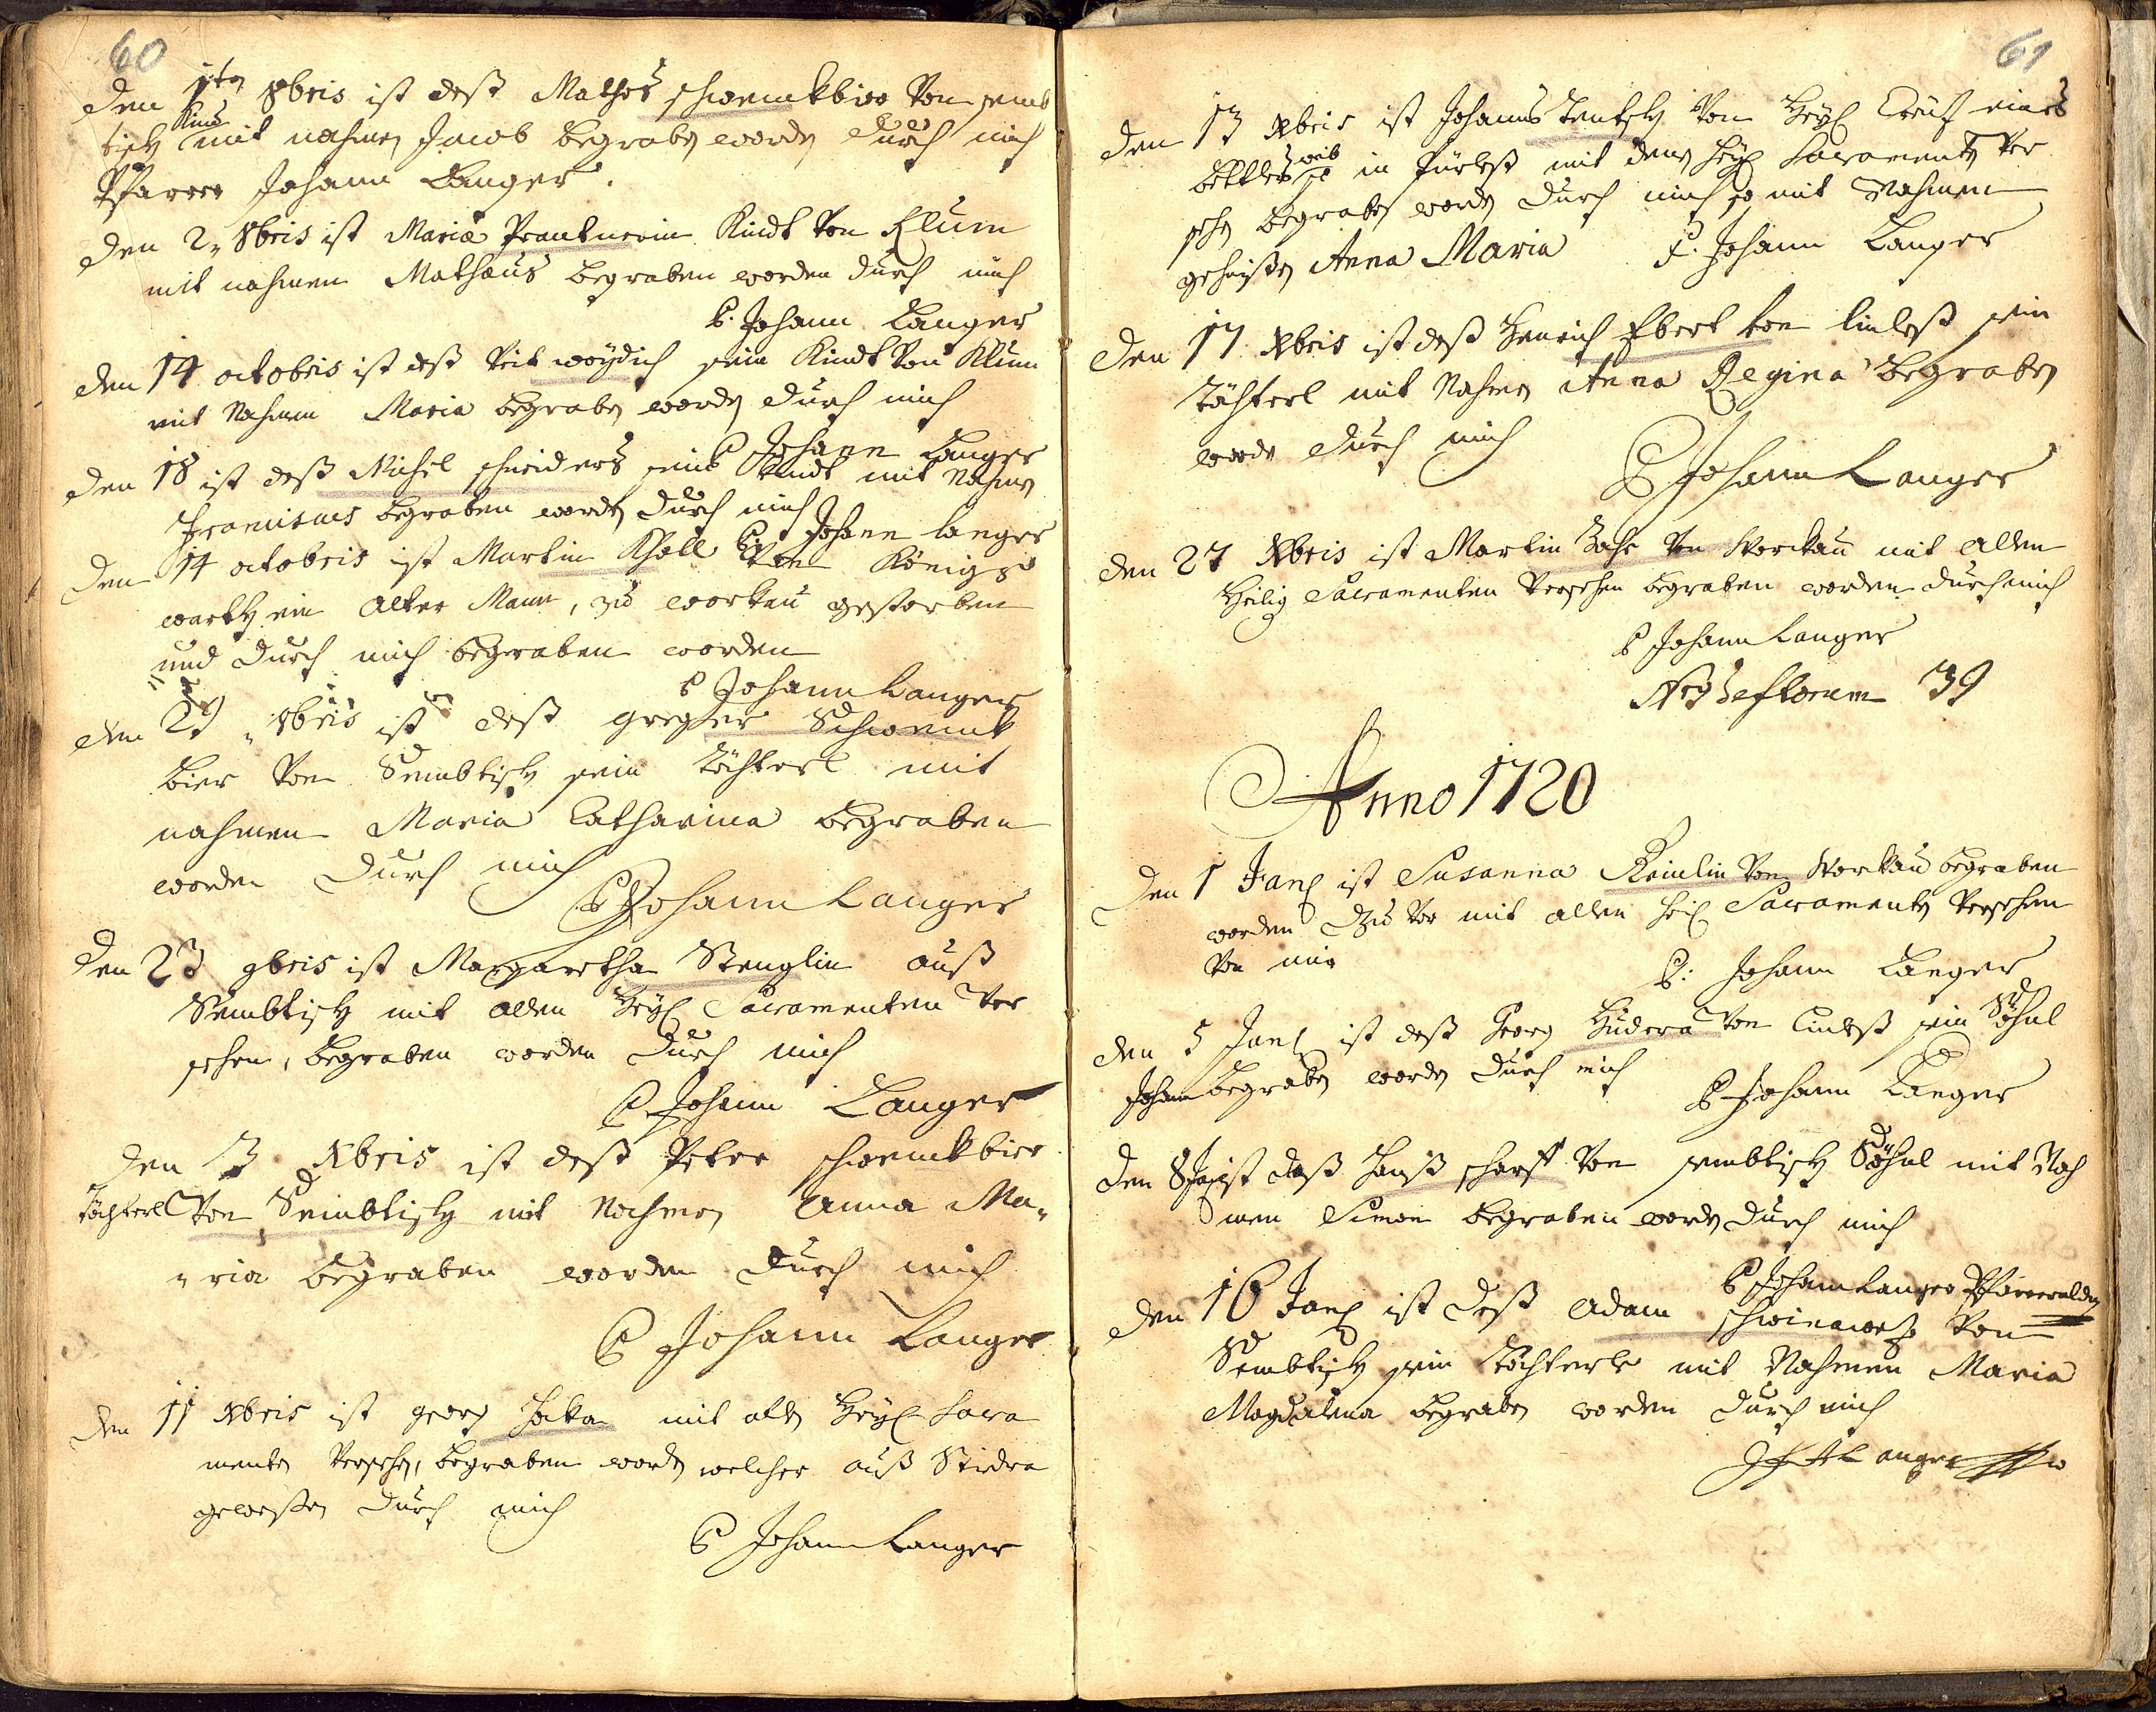 60
den 1ten 8bris ist deß Mathes schwenkbier von sem
Kind
tisch mit nahmen Jacob begraben worden durch mich
Pfarrer Johann Langer.
den 2 8bris ist Maria Prantnerin Kindt von Klum
mit nahmen Mathæus begraben worden durch mich
P. Johann Langer
den 14 octobris ist deß Veit woÿdich sein Kindt von Klum
mit Nahmen Maria begraben worden durch mich
P Johann Langer
den 18 ist deß Michel schneiders sein Kindt mit Nahmen
Franciscus begraben worden durch mich
P Johann langer
den 14 octobris ist Martin Kholl von Königs
warth ein Alter Mann, zu workau gestorben
und durch mich begraben worden
P Johann Langer
den 27 8bris ist deß greger Schwenk
bier von Sembtisch sein töchterl mit
nahmen Maria Catharina begraben
worden durch mich
P Johann Langer
den 23 9bris ist Margaretha Stenglin auß
Sembtisch mit allen Heÿl Sacramenten ver
sehen, begraben worden durch mich
P Johann Langer
den 3 Xbris ist deß Peter schwenkbier
töchterl von Sembtisch mit Nahmen Anna Ma
ria begraben worden durch mich
P Johann Langer
den 11 Xbris ist georg Haka mit allen Heÿl Sacra
menten versehen, begraben worden welcher auß Stedra
geweßen durch mich
P Johann Langer
61
den 13 Xbris ist Johannes von Heÿl Creutz eines
weib
bettlers in mit denen Heÿl Sacramenten ver
sehen begraben worden durch mich so mit Nahmen
geheißen Anna Maria P. Johann Langer
den 17 Xbris ist deß Henrich Ebert von linteß sein
töchterl mit Nahmen Anna Regina begraben
worden durch mich
P Johann Langer
den 27 Xbris ist Martin Zahr von Workau mit allen
Heilig Sacramenten versehen begraben worden durch mich
P Johann Langer
39
Anno 1720
den 1 Janl ist Susanna Reinlin von Workau begraben
worden zu vor mit allen Heil Sacramenten versehen
von mir
P: Johann Langer
den 5 Janl ist deß Georg Hudera von Linteß sein Söhnl
Johann begraben worden durch mich
P Johann Langer
den 8 Jan ist deß Hanß scharff von sembtisch Söhnl mit Nah
men Simon begraben worden durch mich
P Johann Langer
den 16 Janl ist deß Adam von
Sembtisch sein töchterle mit Nahmen Maria
Magdalena begraben worden durch mich
Langer